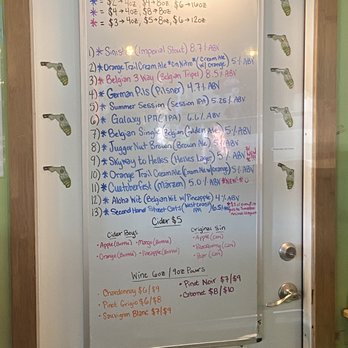 * = $2 → 4oz, $4 → 8oz, $6 → 16oz
* = $4 → 4oz, $8 → 8oz
* = $3 → 4oz, $5 → 8oz, $6 → 12oz
1) * (Imperial Stout) 8.7% ABV
2) * Orange Trail Cream Ale (Cream Ale w/ orange) 5% ABV
3) * Belgian 3 Way (Belgian Tripel) 8.5% ABV
4) * German Pils (Pilsner) 4.7% ABV
5) * Summer Session (Session IPA) 5.25% ABV
6) * Galaxy IPA (IPA) 6.6% ABV
7) * Belgian Single (Belgian Golden Ale) 5% ABV
8) * Juggar Nut Brown (Brown Ale) 5% ABV
9) * Skyway to Helles (Helles Lager) 5% ABV
10) * Orange Trail Cream Ale (Cream Ale w/ orange) 5% ABV
11) * Clubtoberfest (Marzen) 5.0% ABV
12) * Aloha Wit (Belgian Wit w/ Pineapple) 4% ABV
13) * Second Hand Street Cats (West Coast IPA)
Cider $5
Cider Boys
• Apple (Bottle) • Mango (Bottle)
• Orange (Bottle) • Pineapple (Bottle)
Original Sin
• Apple (can)
• Blackberry (can)
• Pear (can)
Wine 6oz / 9oz Pours
• Chardonnay $6/$9
• Pinot Grigio $6/$8
• Sauvignon Blanc $7/$9
• Pinot Noir $7/$9
• Cabernet $8/$10